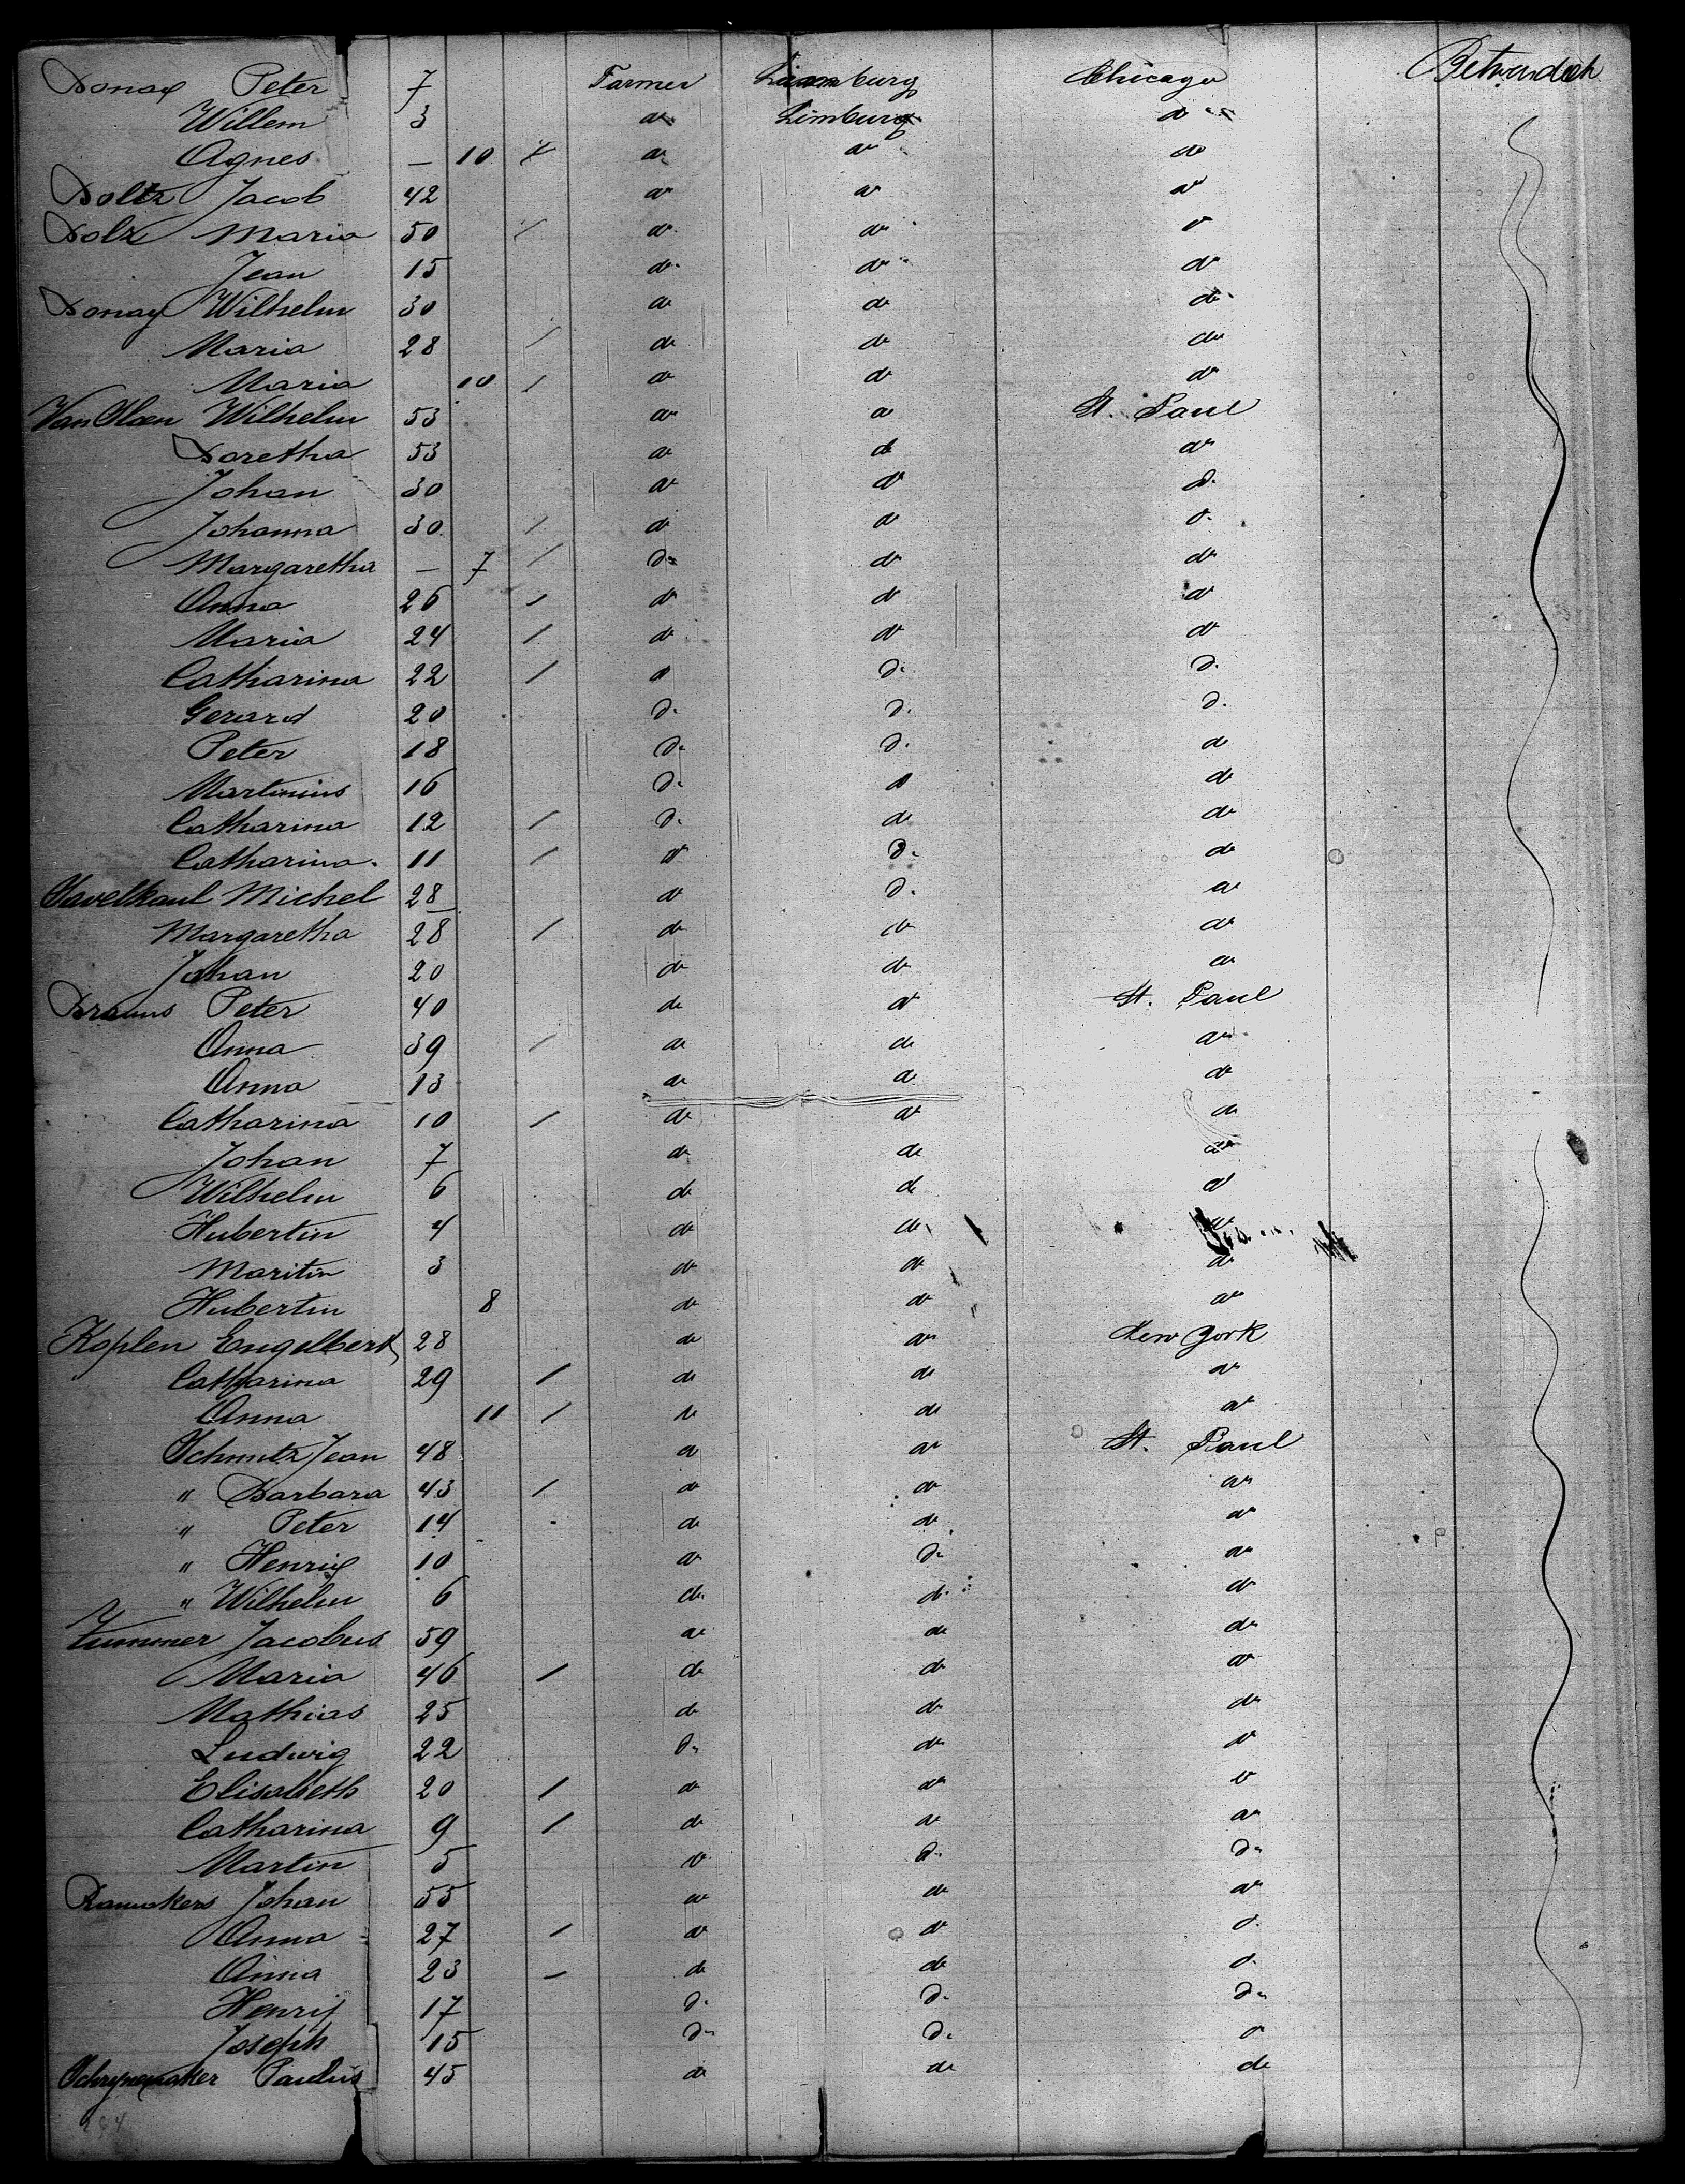 Donay Peter 7 Farmer Limburg Chicago Betwendeck
Willem 3 do Limburg do
Agnes — 10 / do do do
Doltz Jacob 42 do do do
Dolz Maria 50 / do do do
Jean 15 do do do
Donay Wilhelm 30 do do do
Maria 28 / do do do
Maria 10 / do do do
Van Wilhelm 53 do do St. Paul
Doretha 53 do do do
Johan 30 do do do
Johanna 30 / do do do
Margaretha — 7 / do do do
Anna 26 / do do do
Maria 24 / do do do
Catharina 22 / do do do
Gerard 20 do do do
Peter 18 do do do
Martinius 16 do do do
Catharina 12 / do do do
Catharina 11 / do do do
Michel 28 do do do
Margaretha 28 / do do do
Johan 20 do do do
Peter 40 do do St. Paul
Anna 39 / do do do
Anna 13 do do do
Catharina 10 / do do do
Johan 7 do do do
Wilhelm 6 do do do
Hubertin 4 do do do
Maritin 3 do do do
Hubertin 8 do do do
Koplen Engelbert 28 do do New York
Catharina 29 / do do do
Anna 11 / do do do
Schmitz Jean 48 do do St. Paul
" Barbara 43 / do do do
" Peter 14 do do do
" Henrig 10 do do do
" Wilhelm 6 do do do
Zummer Jacobus 59 do do do
Maria 46 / do do do
Mathias 25 do do do
Ludwig 22 do do do
Elisabeth 20 / do do do
Catharina 9 / do do do
Martin 5 do do do
Ramakers Johan 55 do do do
Anna 27 / do do do
Anna 23 / do do do
Henrij 17 do do do
Joseph 15 do do do
Schrynemaker Paulus 45 do do do